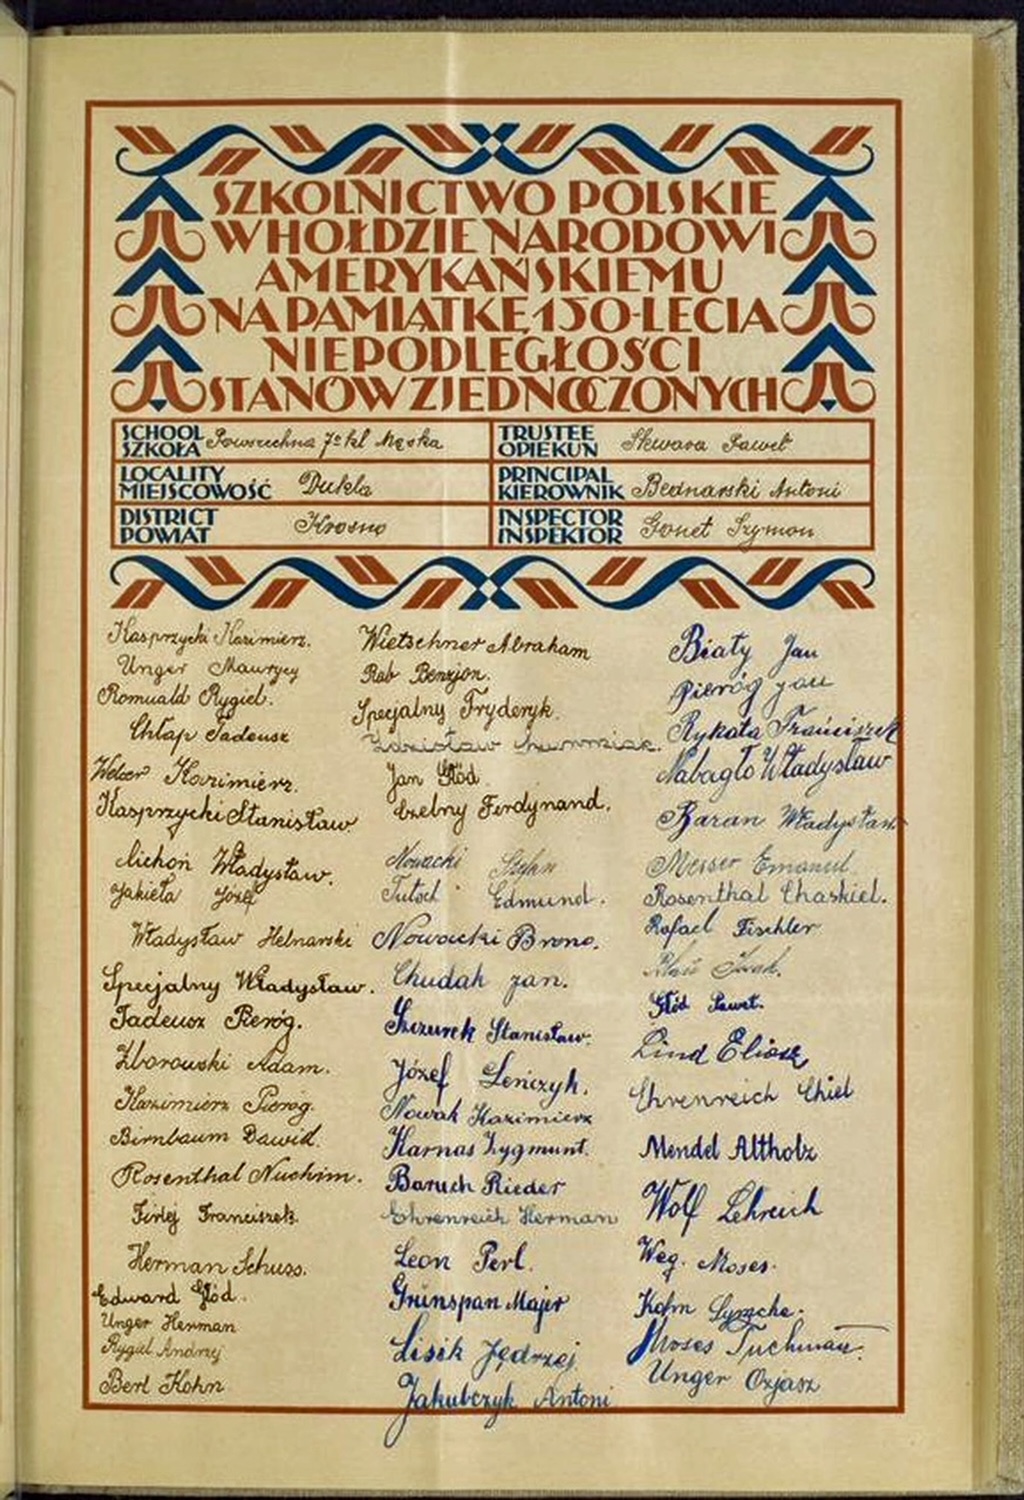 SZKOLNICTWO POLSKIE
W HOŁDZIE NARODOWI
AMERYKAŃSKIEMU
NA PAMIĄTKĘ 150-LECIA
NIEPODLEGŁOŚCI
STANÓW ZJEDNOCZONYCH
SCHOOL
SZKOŁA Powszechna 7º kl Męska
TRUSTEE
OPIEKUN Skwara Paweł
LOCALITY
MIEJSCOWOŚĆ Dukla
PRINCIPAL
KIEROWNIK Bednarski Antoni
DISTRICT
POWIAT Krosno
INSPECTOR
INSPEKTOR Gonet Szymon
Kasprzycki Kazimierz.
Unger Maurycy
Romuald Rygiel.
Chłap Tadeusz
Kazimierz.
Kasprzycki Stanisław
Cichoń Władysław.
Jakieła Józef
Władysław Helnarski
Specjalny Władysław.
Tadeusz Pieróg.
Zborowski Adam.
Kazimierz Pieróg.
Birnbaum Dawid.
Rosenthal Nuchim.
Firlej Franciszek
Herman Schuss.
Edward Głód.
Unger Herman
Rygiel Andrzej
Berl Kohn
Wietschner Abraham
Rab Benzjon.
Specjalny Fryderyk.
Zdzisław
Jan Głód
Czelny Ferdynand.
Nowacki Stefan
Tutoch Edmund.
Nowacki Brono.
Chudak jan.
Szczurek Stanisław.
Józef Leńczyk.
Nowak Kazimierz
Karnas Zygmunt.
Baruch Rieder
Ehrenreich Herman
Leon Perl.
Grünspan Majer
Lisik Jędrzej
Jakubczyk Antoni
Biały Jan
Pieróg jan
Rykała Frańciszek
Nabagło Władysław
Baran Władysław
Messer Emanuel.
Rosenthal Chaskiel.
Rafael Fischler
Głód Paweł.
Lind Eliasz
Ehrenreich Chiel
Mendel Altholz
Wolf Lehreich
Weg. Moses.
Kohn Symche.
Moses Tuchman.
Unger Ozjasz